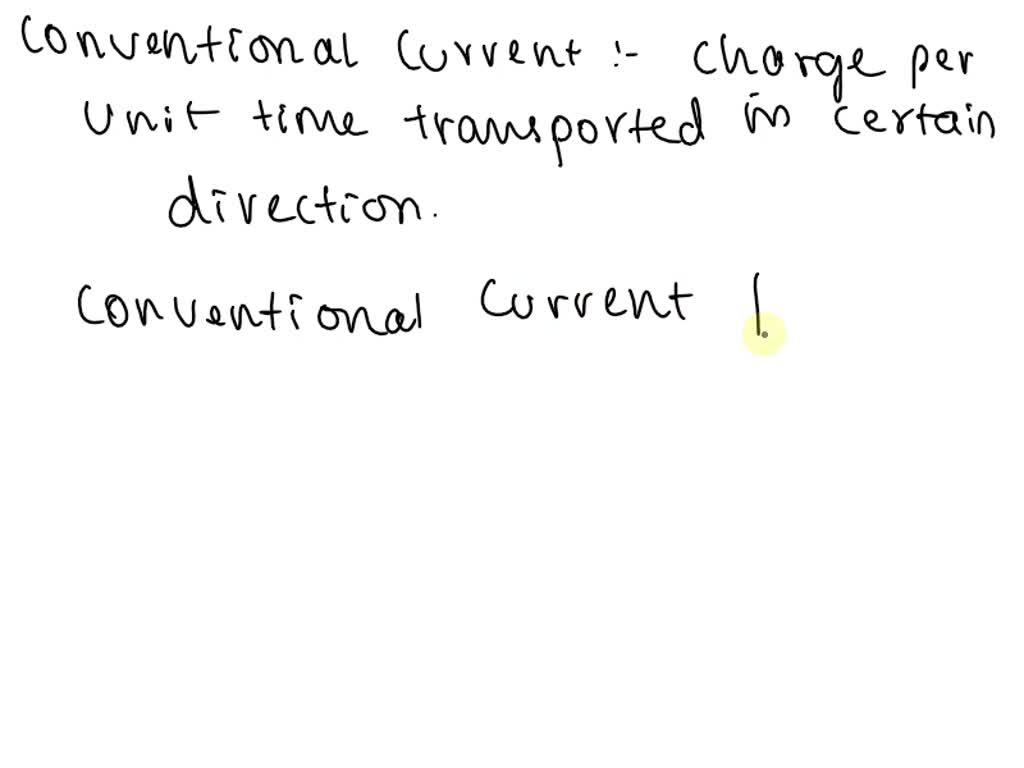 Conventional Current :- Charge per
Unit time transported in certain
direction.
Conventional Current